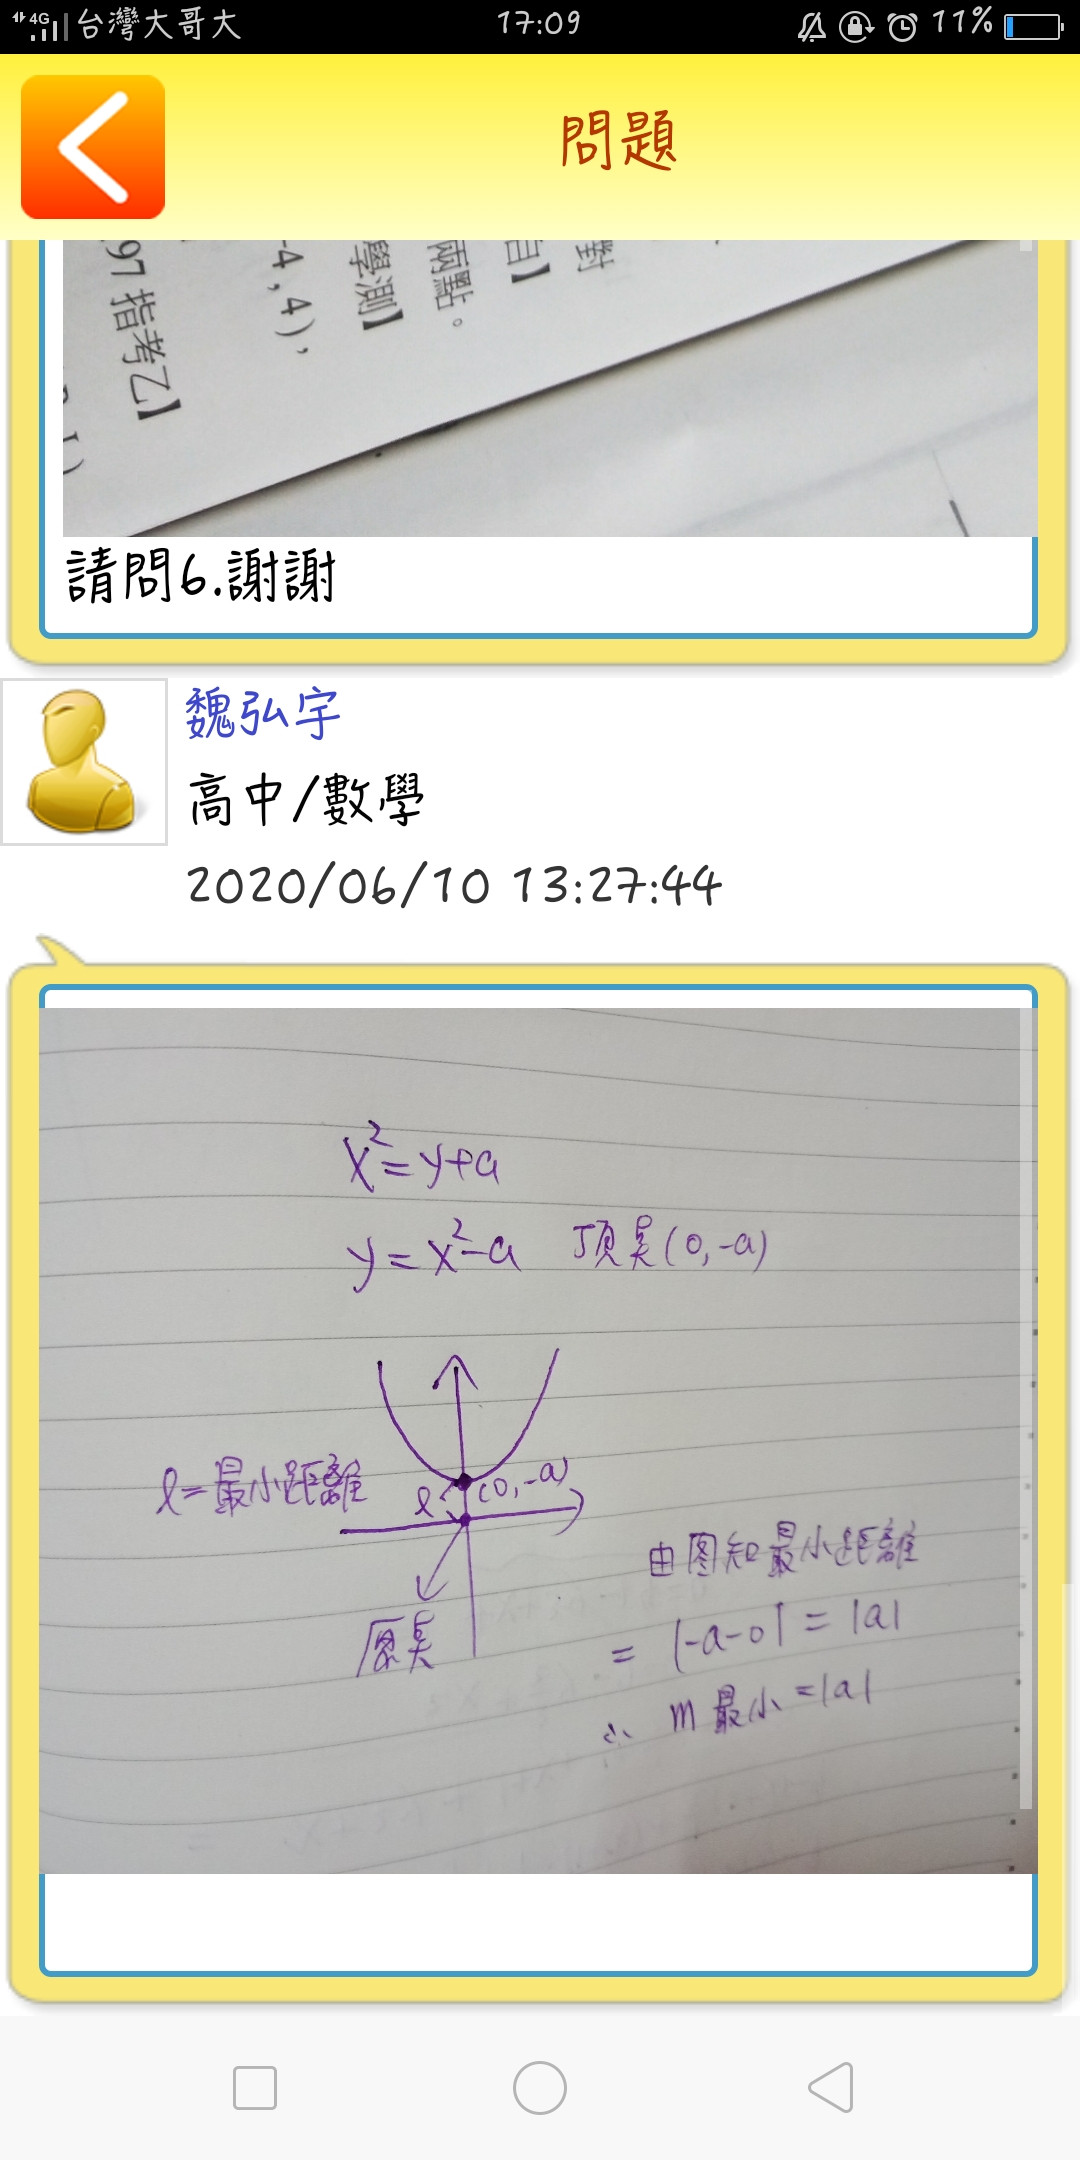 4G 台灣大哥大 17:09 11%
問題
97 指考乙】
-4, 4),
學測】
兩點。
自】
對
請問6.謝謝
魏弘宇
高中/數學
2020/06/10 13:27:44
x²=y+a
y=x²-a 頂點(0,-a)
l=最小距離 l (0,-a)
由图知最小距離
原點 = |-a-0| = |a|
∴ m最小=|a|